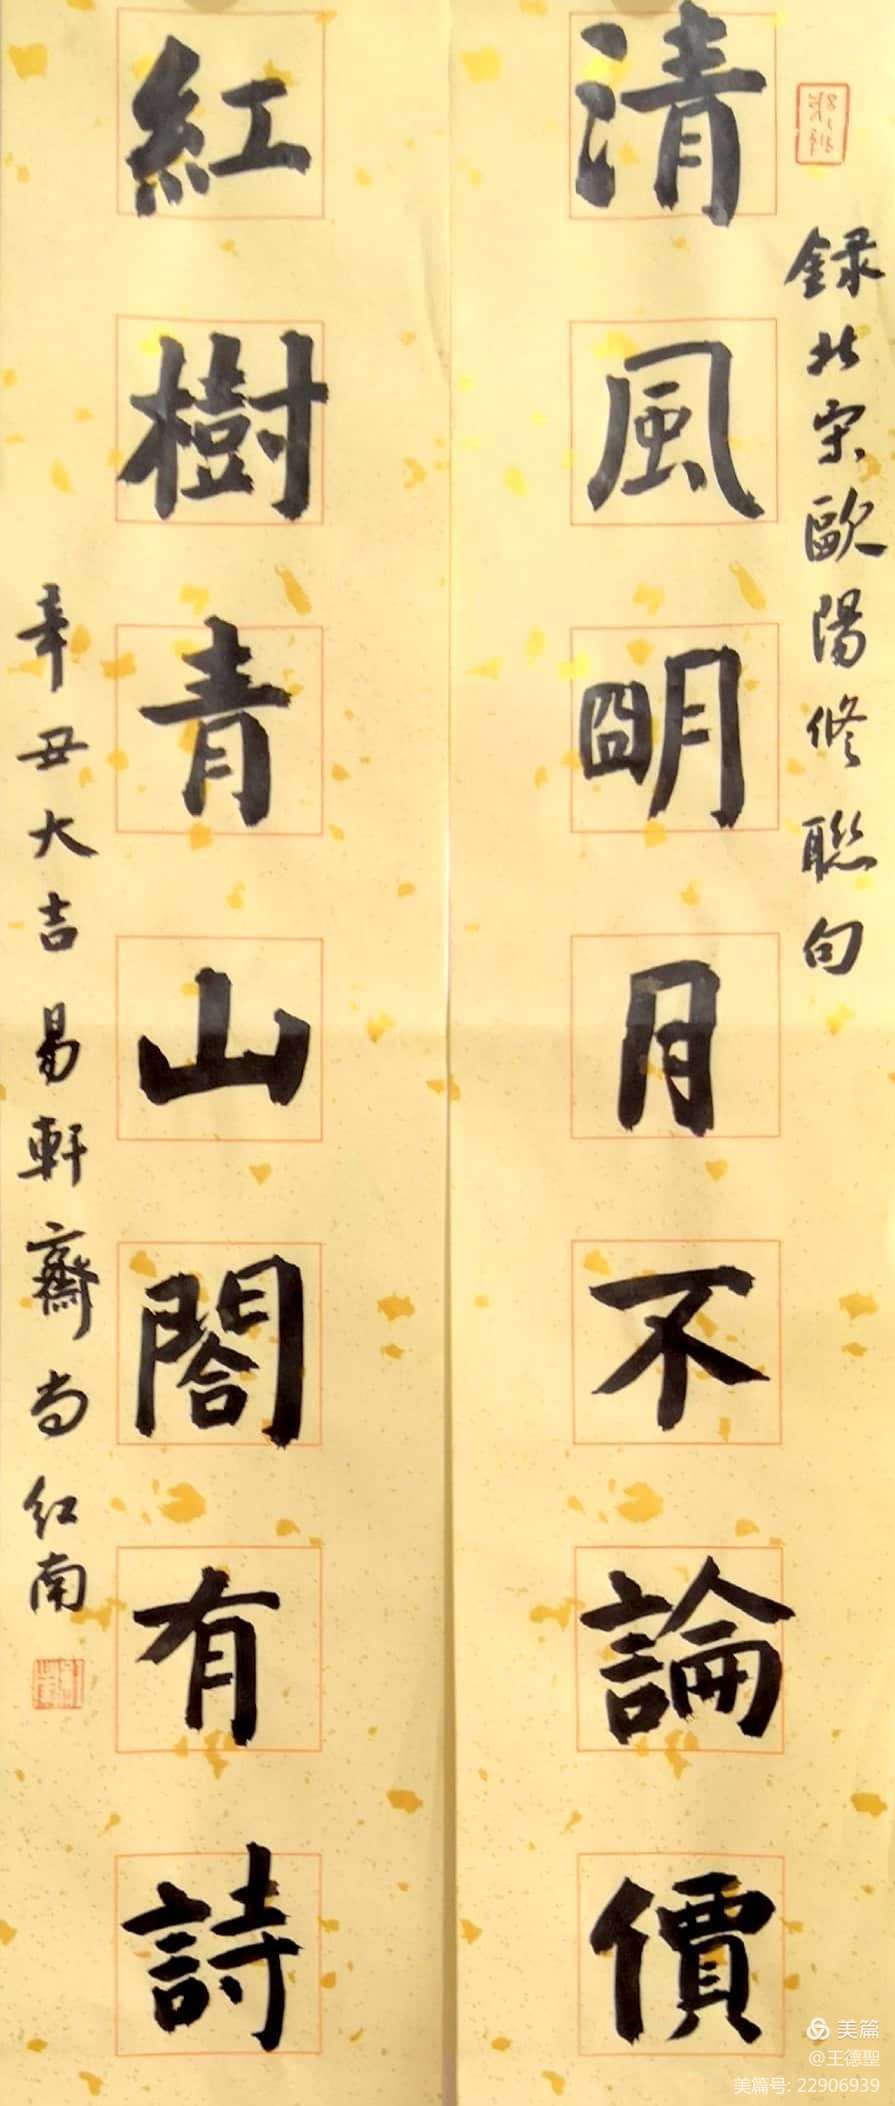 錄北宋歐陽修聯句
清風朙月不論價
紅樹青山閤有詩
辛丑大吉易軒齋尚红南
美篇
@王德聖
美篇号: 22906939